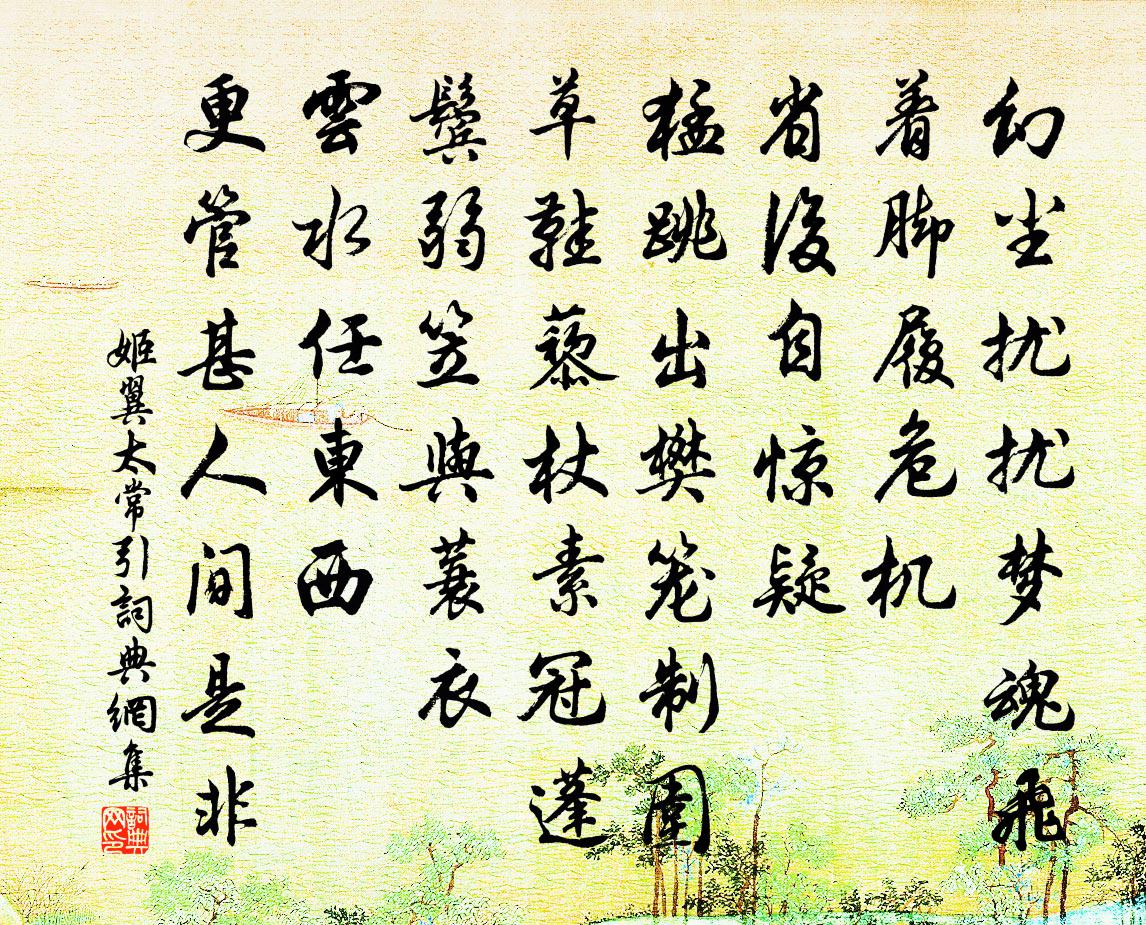 幻尘扰扰梦魂飛
着脚履危机
省後自惊疑
猛跳出樊笼制圍
草鞋藜杖素冠蓬
鬓弱笠與蓑衣
雲水任東西
更管甚人间是非
姬翼太常引詞典網集
詞典网印